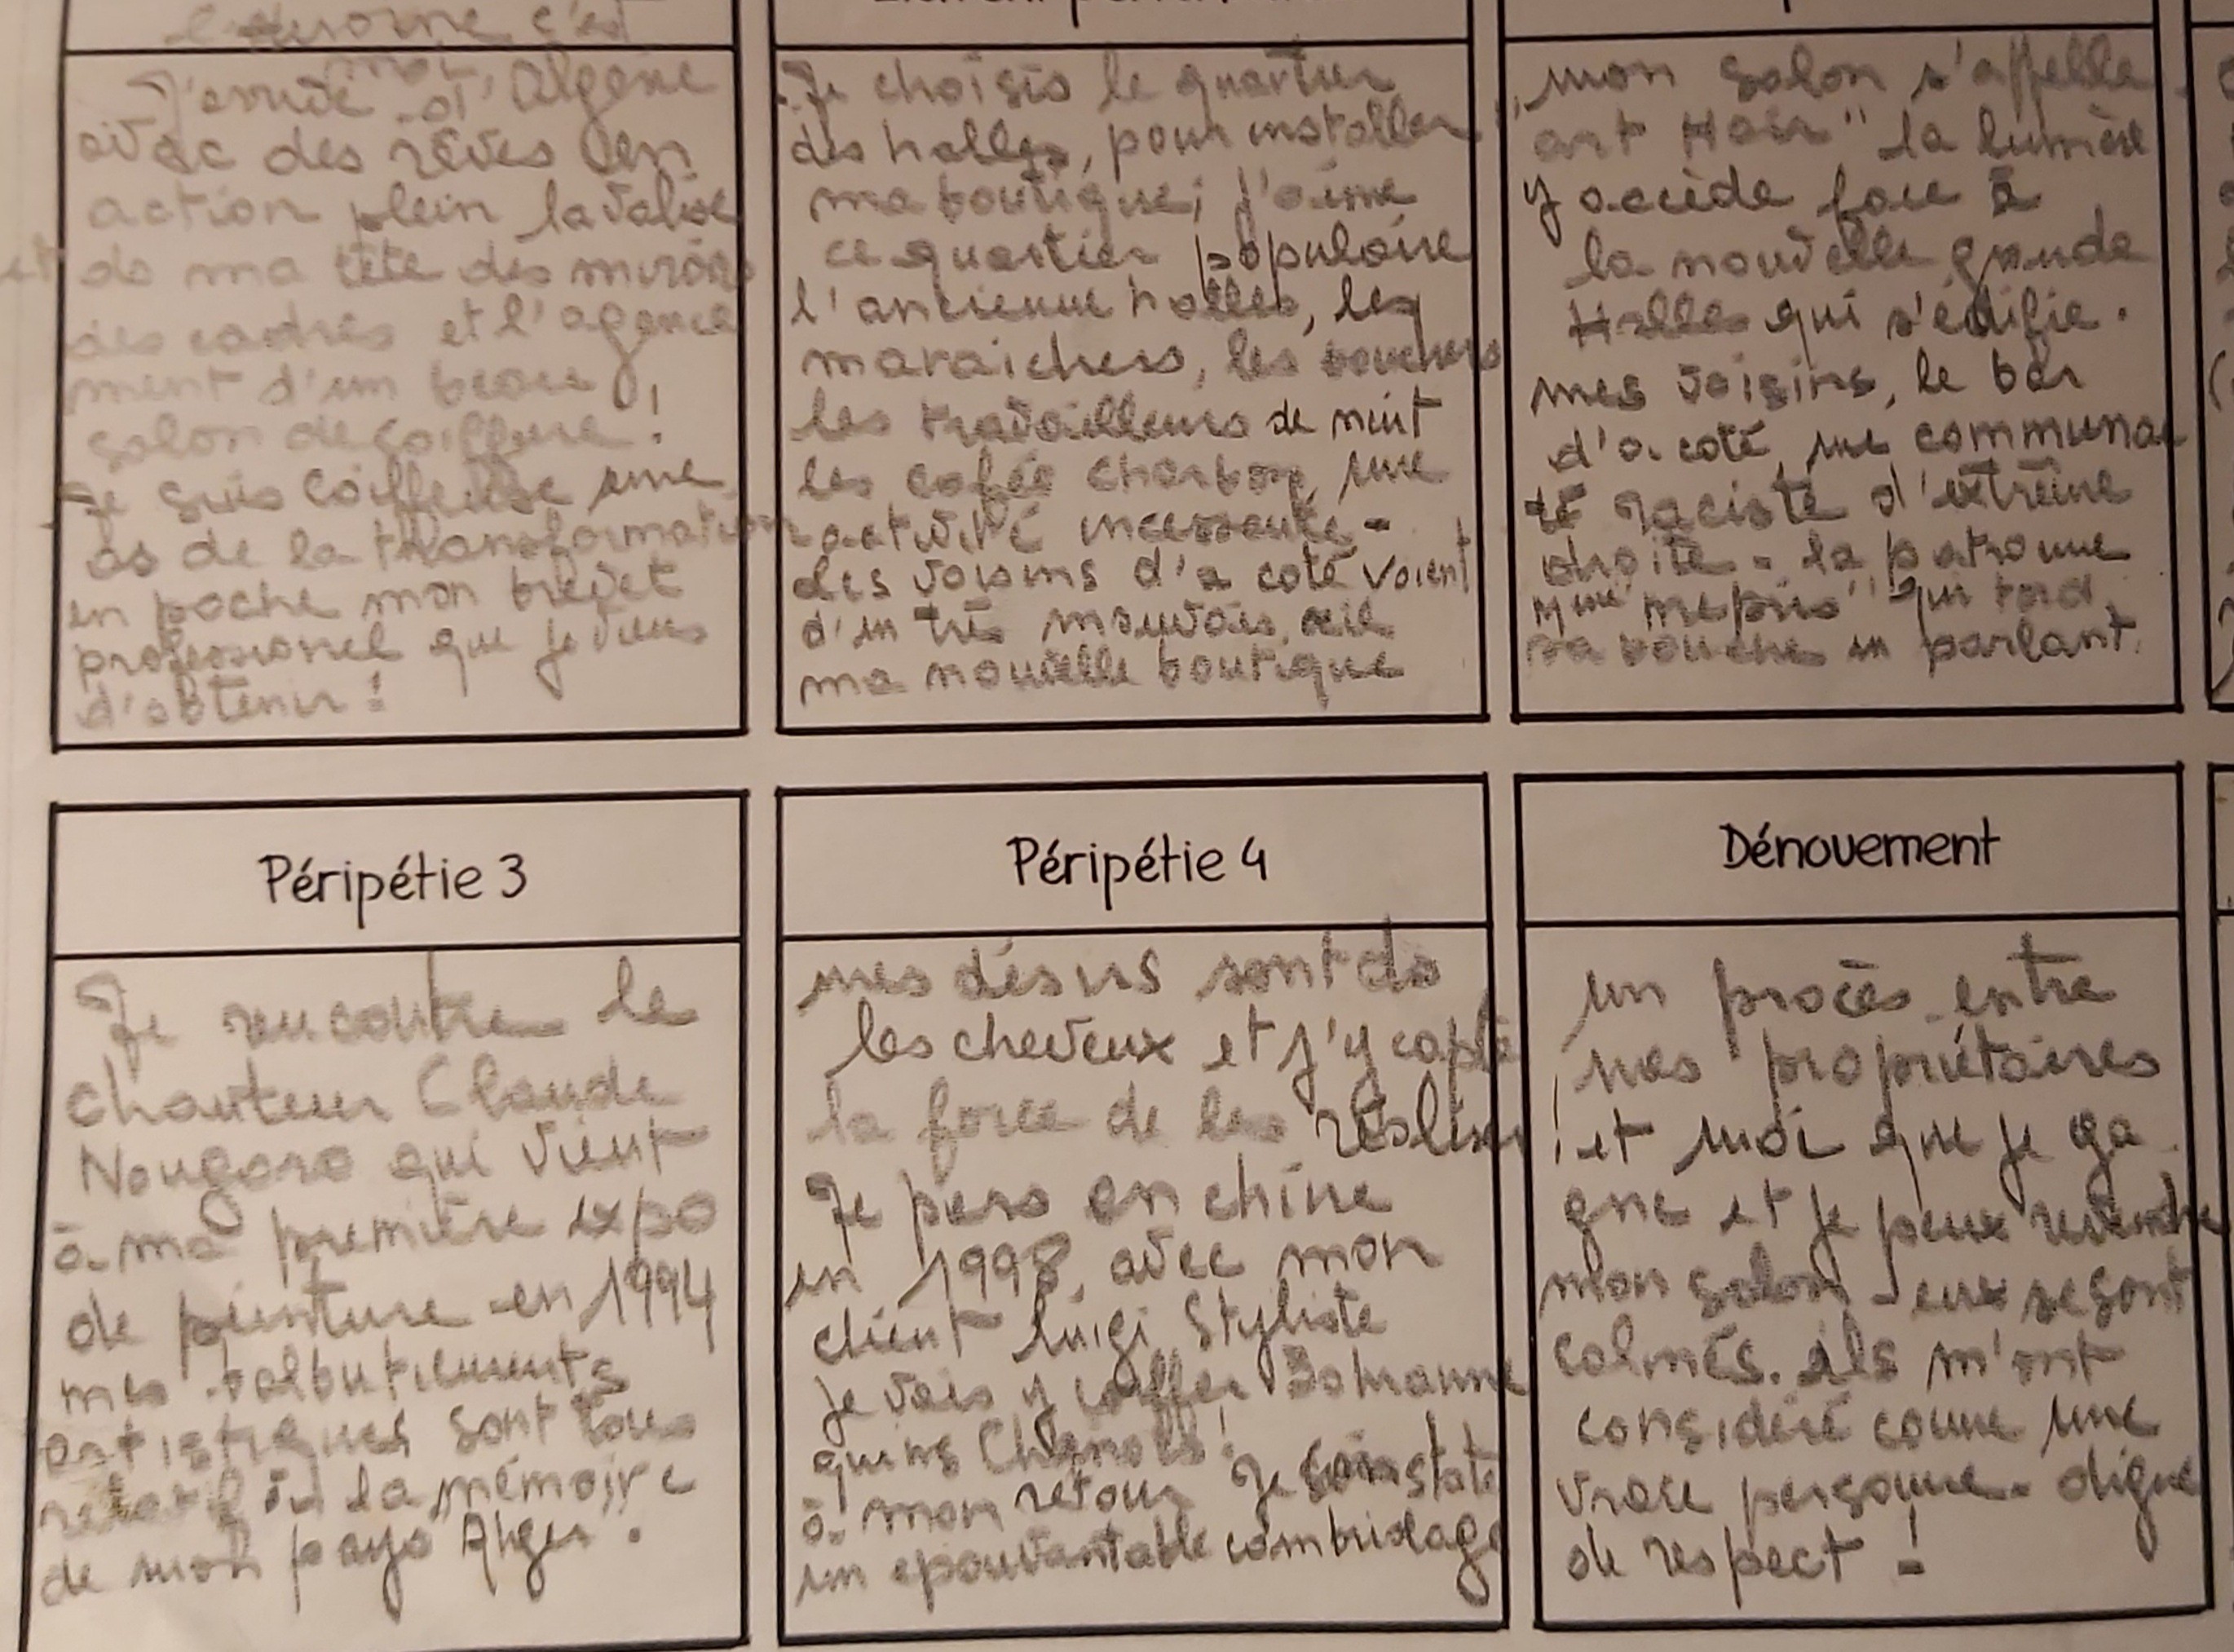 c'est
moi,
J'arrive d'Algérie
avec des rêves en
action plein la valise
et de ma tête des miroirs
des cadres et l'agence
ment d'un beau
salon de coiffure !
Je suis coiffeuse une
as de la transformation
en poche mon brevet
professionnel que je viens
d'obtenir !
Je choisis le quartier
des halles, pour installer
ma boutique; j'aime
ce quartier populaire
l'ancienne halles, les
maraichers, les bouchers
les travailleurs de nuit
les cafés charbon une
activité incessante -
des voisins d'a coté voient
d'un très mauvais œil
ma nouvelle boutique
mon salon s'appelle
"art Hair" la lumière
y accède face à
la nouvelle grande
Halles qui s'édifie.
mes voisins, le bar
d'a coté, une communau
té raciste d'extrême
droite - la patronne
Mme "mepris" qui tord
sa bouche en parlant.
Péripétie 3
Je rencontre le
chanteur Claude
Nougaro qui vient
à ma première expo
de peinture en 1994
mes balbutiements
artistiques sont tous
relatif à la mémoire
de mon pays "Alger".
Péripétie 4
mes désirs sont ds
les cheveux et j'y capte
la force de les
Je pars en chine
en 1998, avec mon
client Luigi Styliste
je vais y coiffer
quins Chinois !
à mon retour je constate
un epouvantable cambriolage
Dénouement
un procès entre
mes propriétaires
et moi que je ga
gne et je peux revendre
mon salon - eux se sont
calmés. ils m'ont
considéré comme une
vraie personne - digne
de respect !